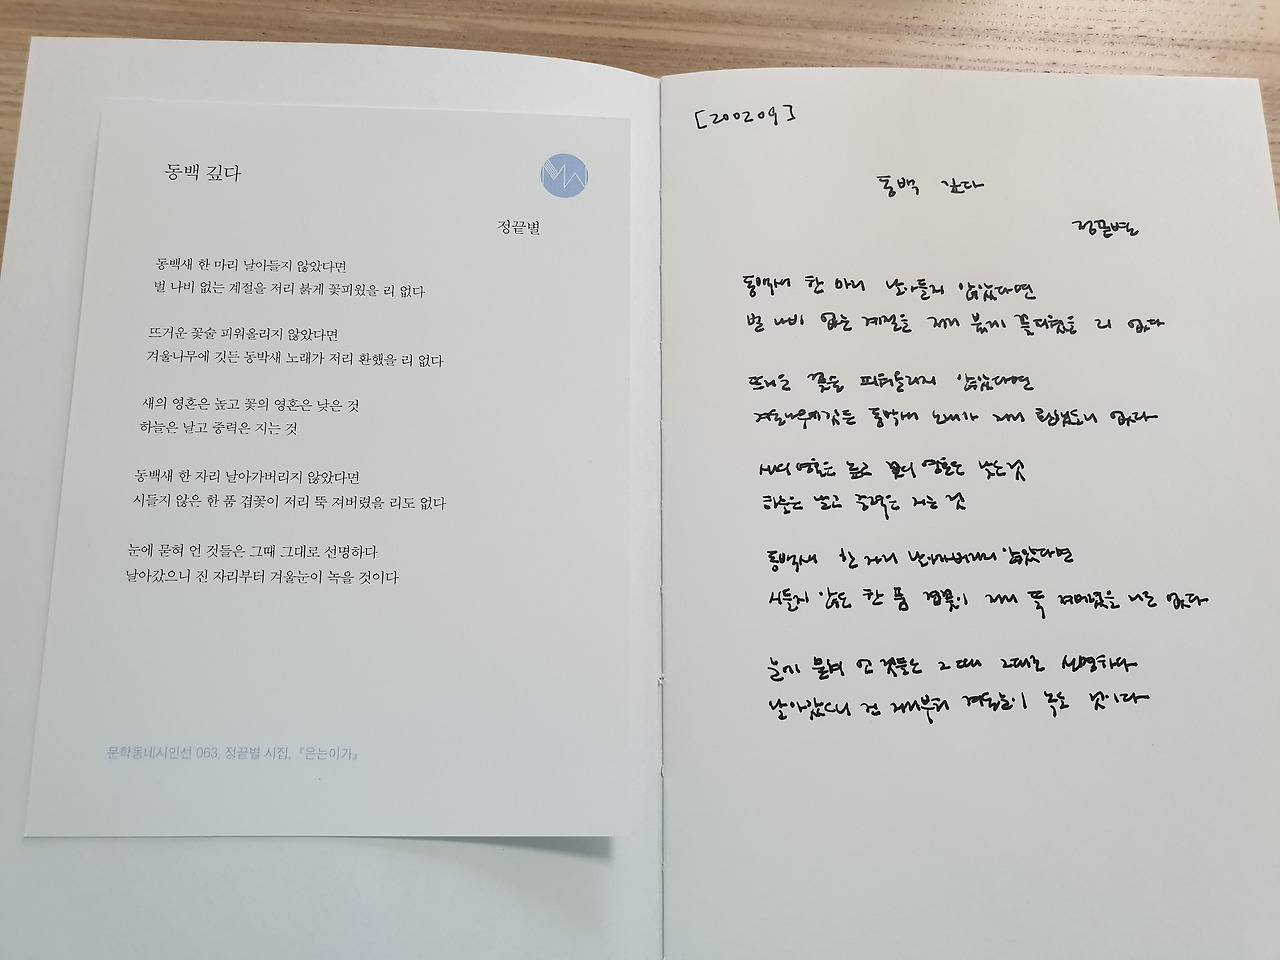 동백 깊다
정끝별
동백새 한 마리 날아들지 않았다면
벌 나비 없는 계절을 저리 붉게 꽃피웠을 리 없다
뜨거운 꽃술 피워올리지 않았다면
겨울나무에 깃든 동박새 노래가 저리 환했을 리 없다
새의 영혼은 높고 꽃의 영혼은 낮은 것
하늘은 날고 중력은 지는 것
동백새 한 자리 날아가버리지 않았다면
시들지 않은 한 품 겹꽃이 저리 뚝 져버렸을 리도 없다
눈에 묻혀 언 것들은 그때 그대로 선명하다
날아갔으니 진 자리부터 겨울눈이 녹을 것이다
문학동네시인선 063, 정끝별 시집, 『은는이가』
[200209]
동백 깊다
정끝별
동백새 한 마리 날아들지 않았다면
벌 나비 없는 계절을 저리 붉게 꽃피웠을 리 없다
뜨거운 꽃술 피워올리지 않았다면
겨울나무에 깃든 동박새 노래가 저리 환했을 리 없다
새의 영혼은 높고 꽃의 영혼은 낮은 것
하늘은 날고 중력은 지는 것
동백새 한 자리 날아가버리지 않았다면
시들지 않은 한 품 겹꽃이 저리 뚝 져버렸을 리도 없다
눈에 묻혀 언 것들은 그때 그대로 선명하다
날아갔으니 진 자리부터 겨울눈이 녹을 것이다